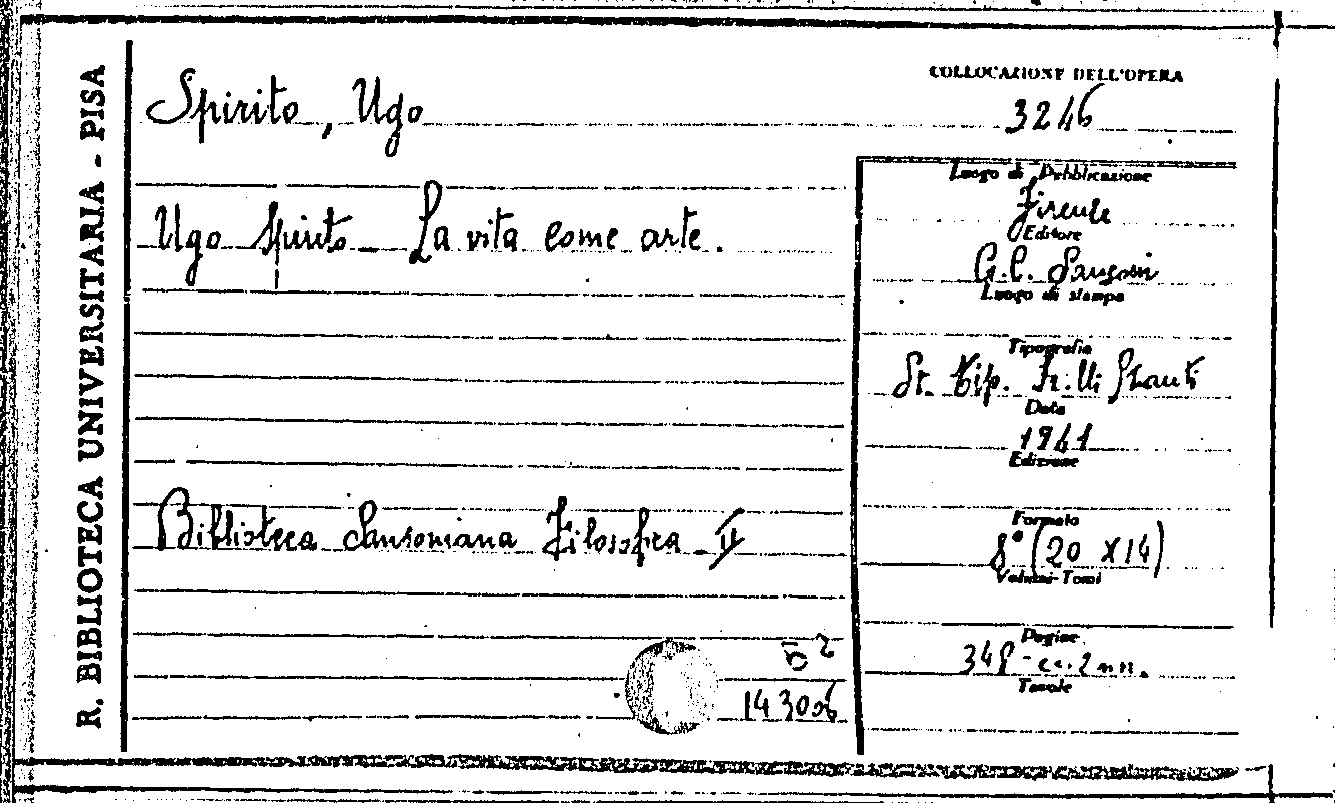 R. BIBLIOTECA UNIVERSITARIA - PISA
Spirito, Ugo
COLLOCAZIONE DELL'OPERA
3246
Ugo Spirito - La vita come arte.
Luogo di Pubblicazione
Firenze
Editore
G. C. Sansoni
Luogo di stampa
Tipografia
St. Tip. F.lli Stianti
Data
1941
Edizione
Biblioteca Sansoniana Filosofica II
Formato
8° (20 X 14)
Volumi-Tomi
Pagine
348 - cc. 2 nn.
Tavole
143006